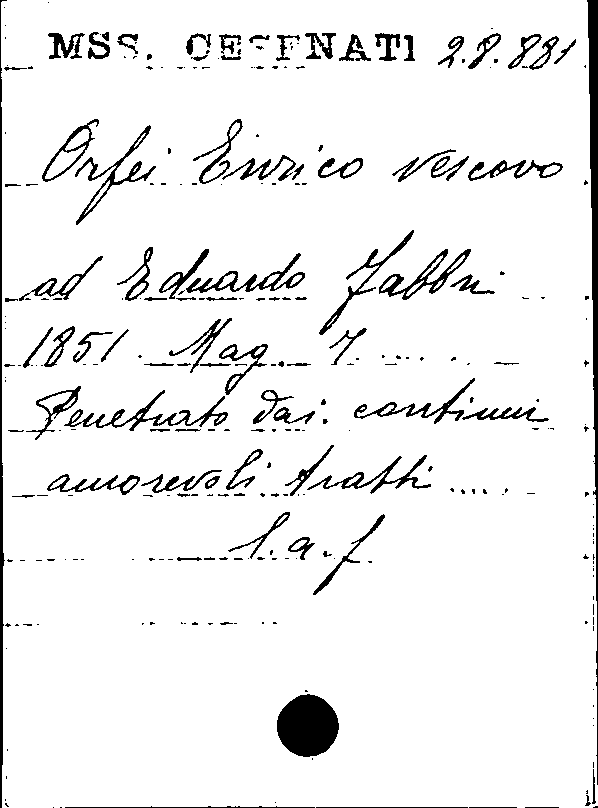 MSS. CESENATI 2.8.881
Orfei Enrico vescovo
ad Eduardo Fabbri
1851 Mag. 7.....
Penetrato dai continui
amorevoli tratti.....
l.a.f